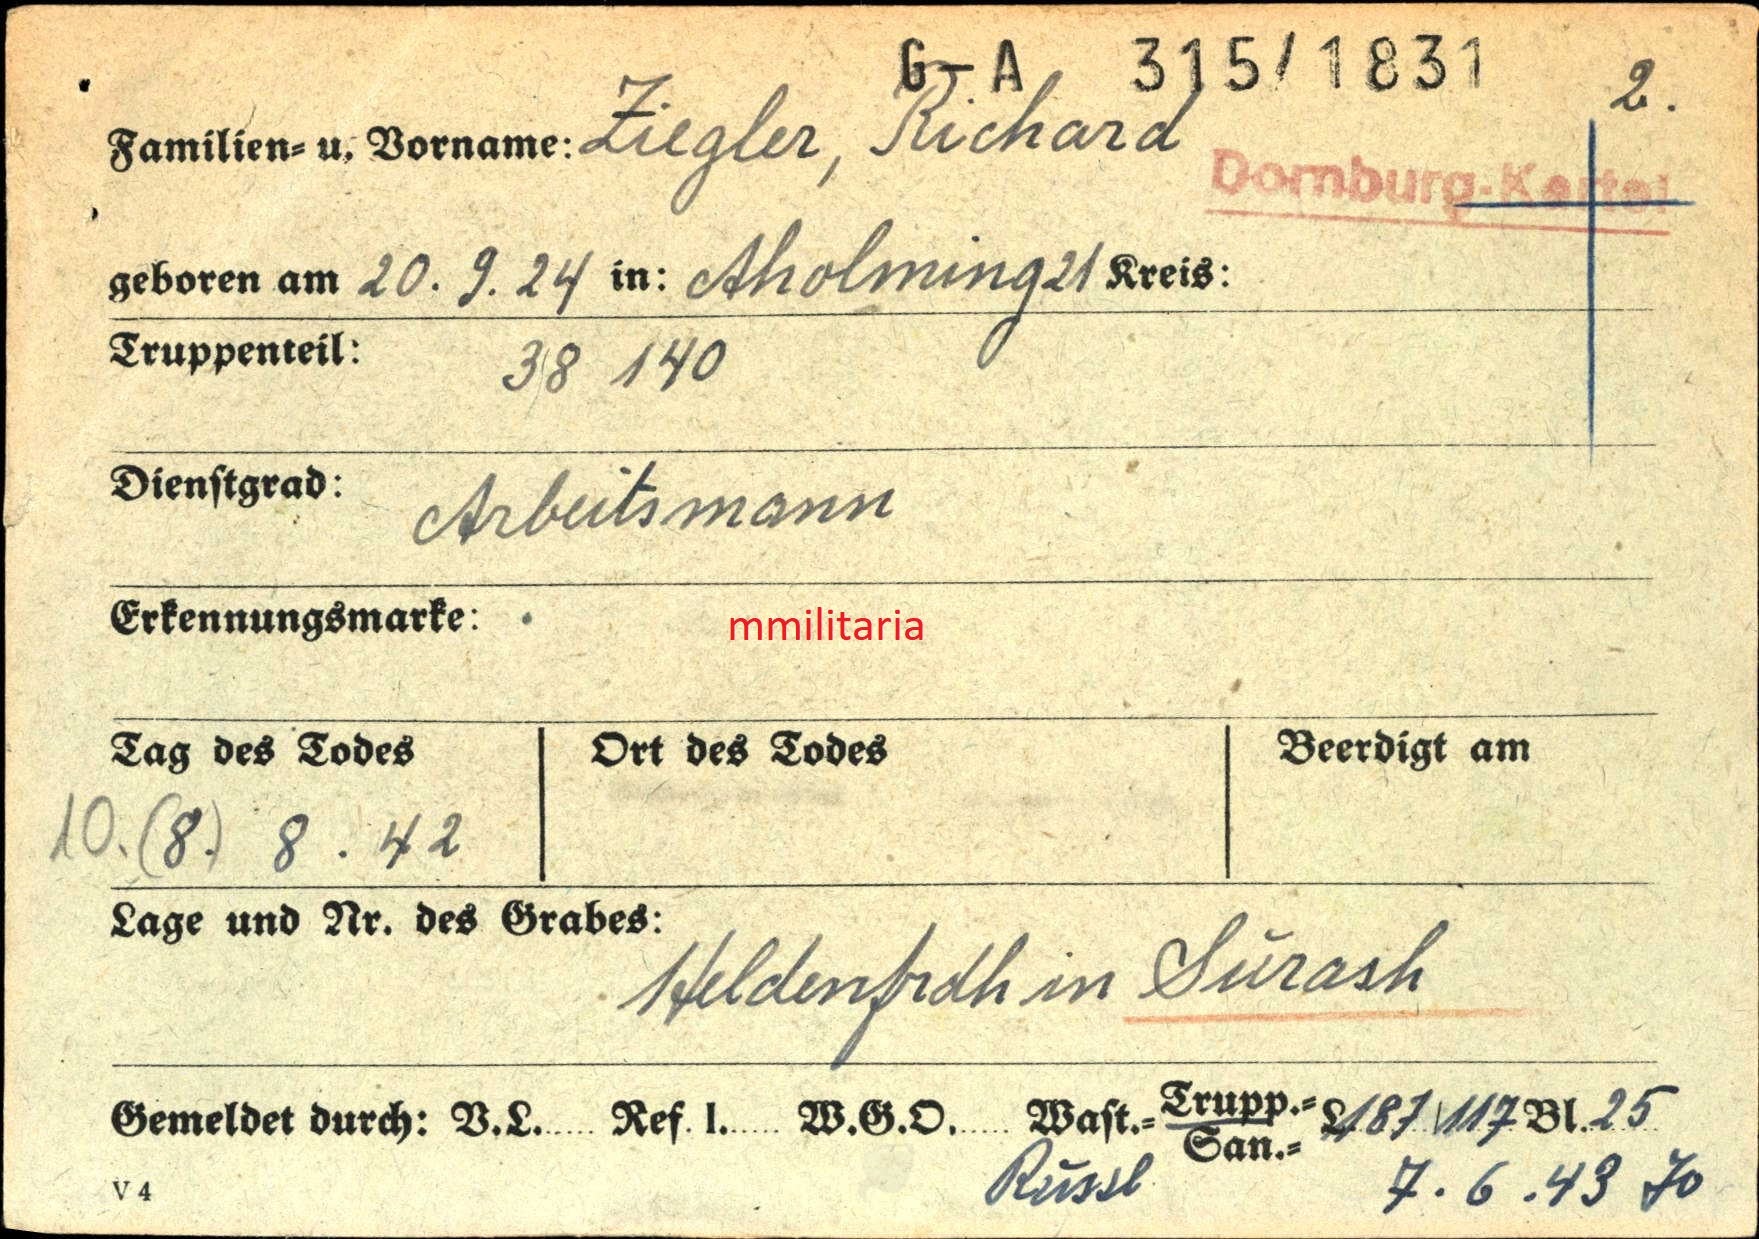 G-A 315/1831
2.
Familien= u. Vorname: Ziegler, Richard
Dornburg-Kartei
geboren am 20. 9. 24 in: Aholming 21 Kreis:
Truppenteil: 38 140
Dienstgrad: Arbeitsmann
Erkennungsmarke:
mmilitaria
Tag des Todes Ort des Todes Beerdigt am
10. (8.) 8. 42
Lage und Nr. des Grabes:
Heldenfrdh in Surash
Gemeldet durch: V.L. Ref. I. W.G.O. Wast.= Trupp.= L 187/117 Bl. 25
San.=
Russl 7. 6. 43 70
V 4